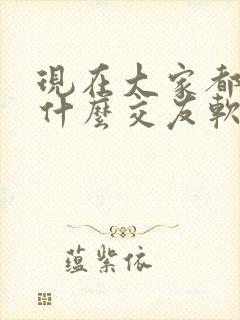 現在大家都
什麼交友軟
蕴紫依